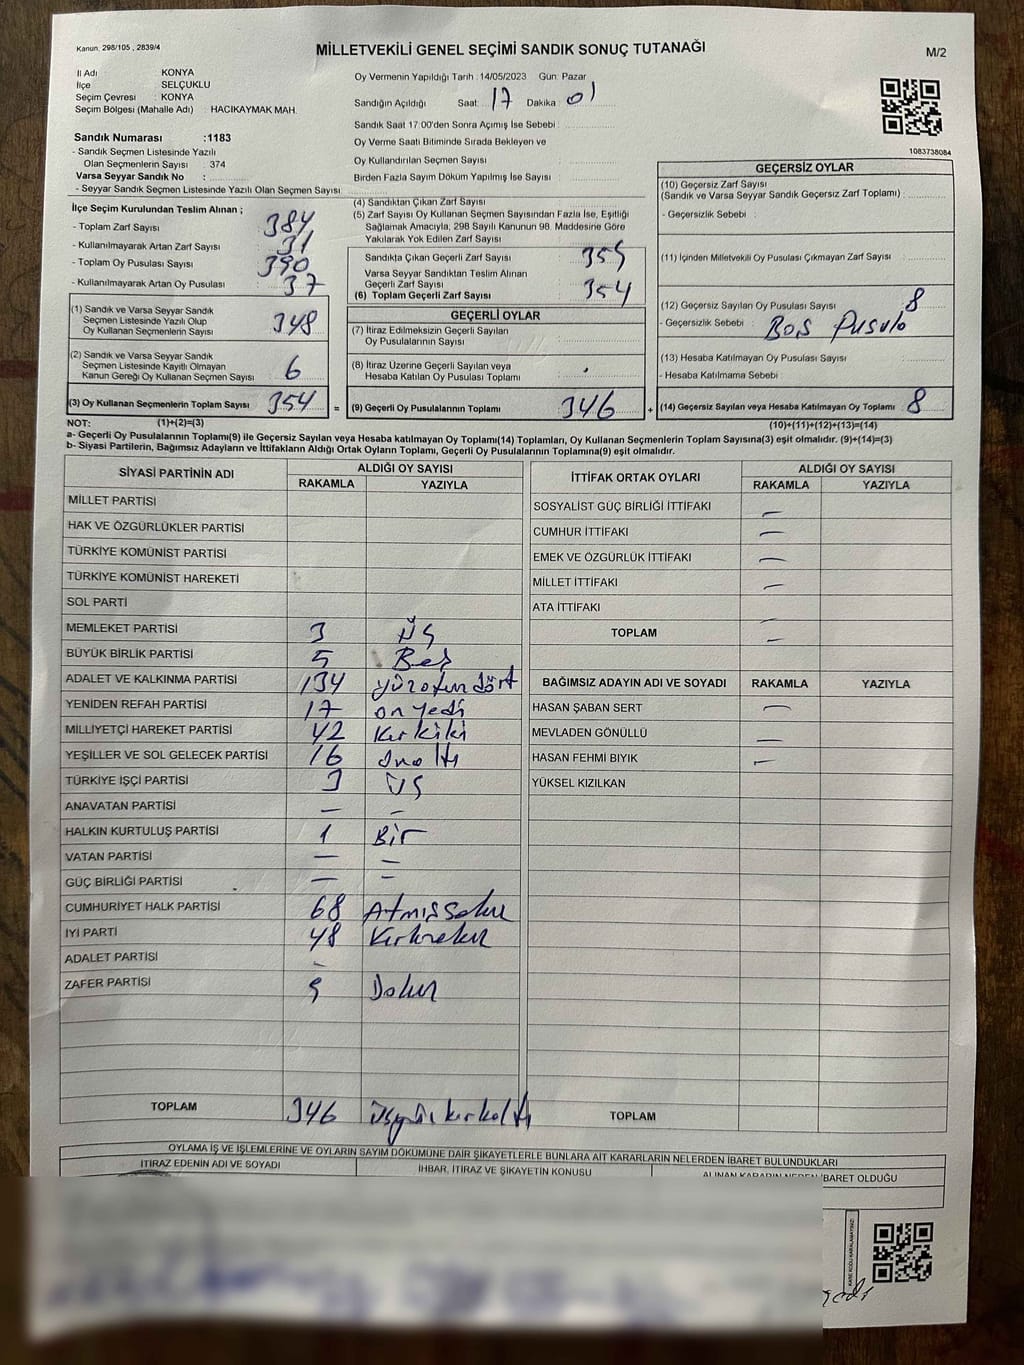 Kanun, 298/105 , 2839/4
MİLLETVEKİLİ GENEL SEÇİMİ SANDIK SONUÇ TUTANAĞI
M/2
İl Adı KONYA
İlçe SELÇUKLU
Seçim Çevresi : KONYA
Seçim Bölgesi (Mahalle Adı) : HACIKAYMAK MAH.
Sandık Numarası :1183
- Sandık Seçmen Listesinde Yazılı
Olan Seçmenlerin Sayısı : 374
Varsa Seyyar Sandık No :
- Seyyar Sandık Seçmen Listesinde Yazılı Olan Seçmen Sayısı
Oy Vermenin Yapıldığı Tarih : 14/05/2023 Gün: Pazar
Sandığın Açıldığı Saat: 17 Dakika: 01
Sandık Saat 17:00'den Sonra Açımış İse Sebebi :
Oy Verme Saati Bitiminde Sırada Bekleyen ve
Oy Kullandırılan Seçmen Sayısı :
Birden Fazla Sayım Döküm Yapılmış İse Sayısı :
1083738084
İlçe Seçim Kurulundan Teslim Alınan ;
- Toplam Zarf Sayısı : 384
- Kullanılmayarak Artan Zarf Sayısı : 31
- Toplam Oy Pusulası Sayısı : 390
- Kullanılmayarak Artan Oy Pusulası : 37
(1) Sandık ve Varsa Seyyar Sandık
Seçmen Listesinde Yazılı Olup
Oy Kullanan Seçmenlerin Sayısı : 348
(2) Sandık ve Varsa Seyyar Sandık
Seçmen Listesinde Kayıtlı Olmayan
Kanun Gereği Oy Kullanan Seçmen Sayısı : 6
(3) Oy Kullanan Seçmenlerin Toplam Sayısı : 354 =
(4) Sandıktan Çıkan Zarf Sayısı
(5) Zarf Sayısı Oy Kullanan Seçmen Sayısından Fazla İse, Eşitliği
Sağlamak Amacıyla, 298 Sayılı Kanunun 98. Maddesine Göre
Yakılarak Yok Edilen Zarf Sayısı
Sandıkta Çıkan Geçerli Zarf Sayısı : 354
Varsa Seyyar Sandıktan Teslim Alınan
Geçerli Zarf Sayısı
(6) Toplam Geçerli Zarf Sayısı : 354
GEÇERLİ OYLAR
(7) İtiraz Edilmeksizin Geçerli Sayılan
Oy Pusulalarının Sayısı :
(8) İtiraz Üzerine Geçerli Sayılan veya
Hesaba Katılan Oy Pusulası Toplamı :
(9) Geçerli Oy Pusulalarının Toplamı : 346 +
GEÇERSİZ OYLAR
(10) Geçersiz Zarf Sayısı
(Sandık ve Varsa Seyyar Sandık Geçersiz Zarf Toplamı) :
- Geçersizlik Sebebi :
(11) İçinden Milletvekili Oy Pusulası Çıkmayan Zarf Sayısı :
(12) Geçersiz Sayılan Oy Pusulası Sayısı : 8
- Geçersizlik Sebebi : Boş Pusula
(13) Hesaba Katılmayan Oy Pusulası Sayısı :
- Hesaba Katılmama Sebebi :
(14) Geçersiz Sayılan veya Hesaba Katılmayan Oy Pusulası Toplamı : 8
NOT: (1)+(2)=(3)
(10)+(11)+(12)+(13)=(14)
a- Geçerli Oy Pusulalarının Toplamı(9) ile Geçersiz Sayılan veya Hesaba katılmayan Oy Toplamı(14) Toplamları, Oy Kullanan Seçmenlerin Toplam Sayısına(3) eşit olmalıdır. (9)+(14)=(3)
b- Siyasi Partilerin, Bağımsız Adayların ve İttifakların Aldığı Ortak Oyların Toplamı, Geçerli Oy Pusulalarının Toplamına(9) eşit olmalıdır.
SİYASİ PARTİNİN ADI ALDIĞI OY SAYISI
RAKAMLA YAZIYLA
MİLLET PARTİSİ
HAK VE ÖZGÜRLÜKLER PARTİSİ
TÜRKİYE KOMÜNİST PARTİSİ
TÜRKİYE KOMÜNİST HAREKETİ
SOL PARTİ
MEMLEKET PARTİSİ 3 Üç
BÜYÜK BİRLİK PARTİSİ 5 Beş
ADALET VE KALKINMA PARTİSİ 134 yüzotuzdört
YENİDEN REFAH PARTİSİ 17 onyedi
MİLLİYETÇİ HAREKET PARTİSİ 42 Kırkiki
YEŞİLLER VE SOL GELECEK PARTİSİ 16 Onaltı
TÜRKİYE İŞÇİ PARTİSİ 3 Üç
ANAVATAN PARTİSİ – –
HALKIN KURTULUŞ PARTİSİ 1 Bir
VATAN PARTİSİ – –
GÜÇ BİRLİĞİ PARTİSİ – –
CUMHURİYET HALK PARTİSİ 68 Atmışsekiz
İYİ PARTİ 48 Kırksekiz
ADALET PARTİSİ -
ZAFER PARTİSİ 9 Dokuz
TOPLAM 346 üçyüzkırkaltı
İTTİFAK ORTAK OYLARI ALDIĞI OY SAYISI
RAKAMLA YAZIYLA
SOSYALİST GÜÇ BİRLİĞİ İTTİFAKI –
CUMHUR İTTİFAKI –
EMEK VE ÖZGÜRLÜK İTTİFAKI –
MİLLET İTTİFAKI –
ATA İTTİFAKI –
TOPLAM –
BAĞIMSIZ ADAYIN ADI VE SOYADI RAKAMLA YAZIYLA
HASAN ŞABAN SERT –
MEVLADEN GÖNÜLLÜ –
HASAN FEHMİ BIYIK –
YÜKSEL KIZILKAN
TOPLAM
OYLAMA İŞ VE İŞLEMLERİNE VE OYLARIN SAYIM DÖKÜMÜNE DAİR ŞİKAYETLERLE BUNLARA AİT KARARLARIN NELERDEN İBARET BULUNDUKLARI
İTİRAZ EDENİN ADI VE SOYADI İHBAR, İTİRAZ VE ŞİKAYETİN KONUSU ALINAN KARARIN NEDEN İBARET OLDUĞU
KARE KODU KARALAMAYINIZ!